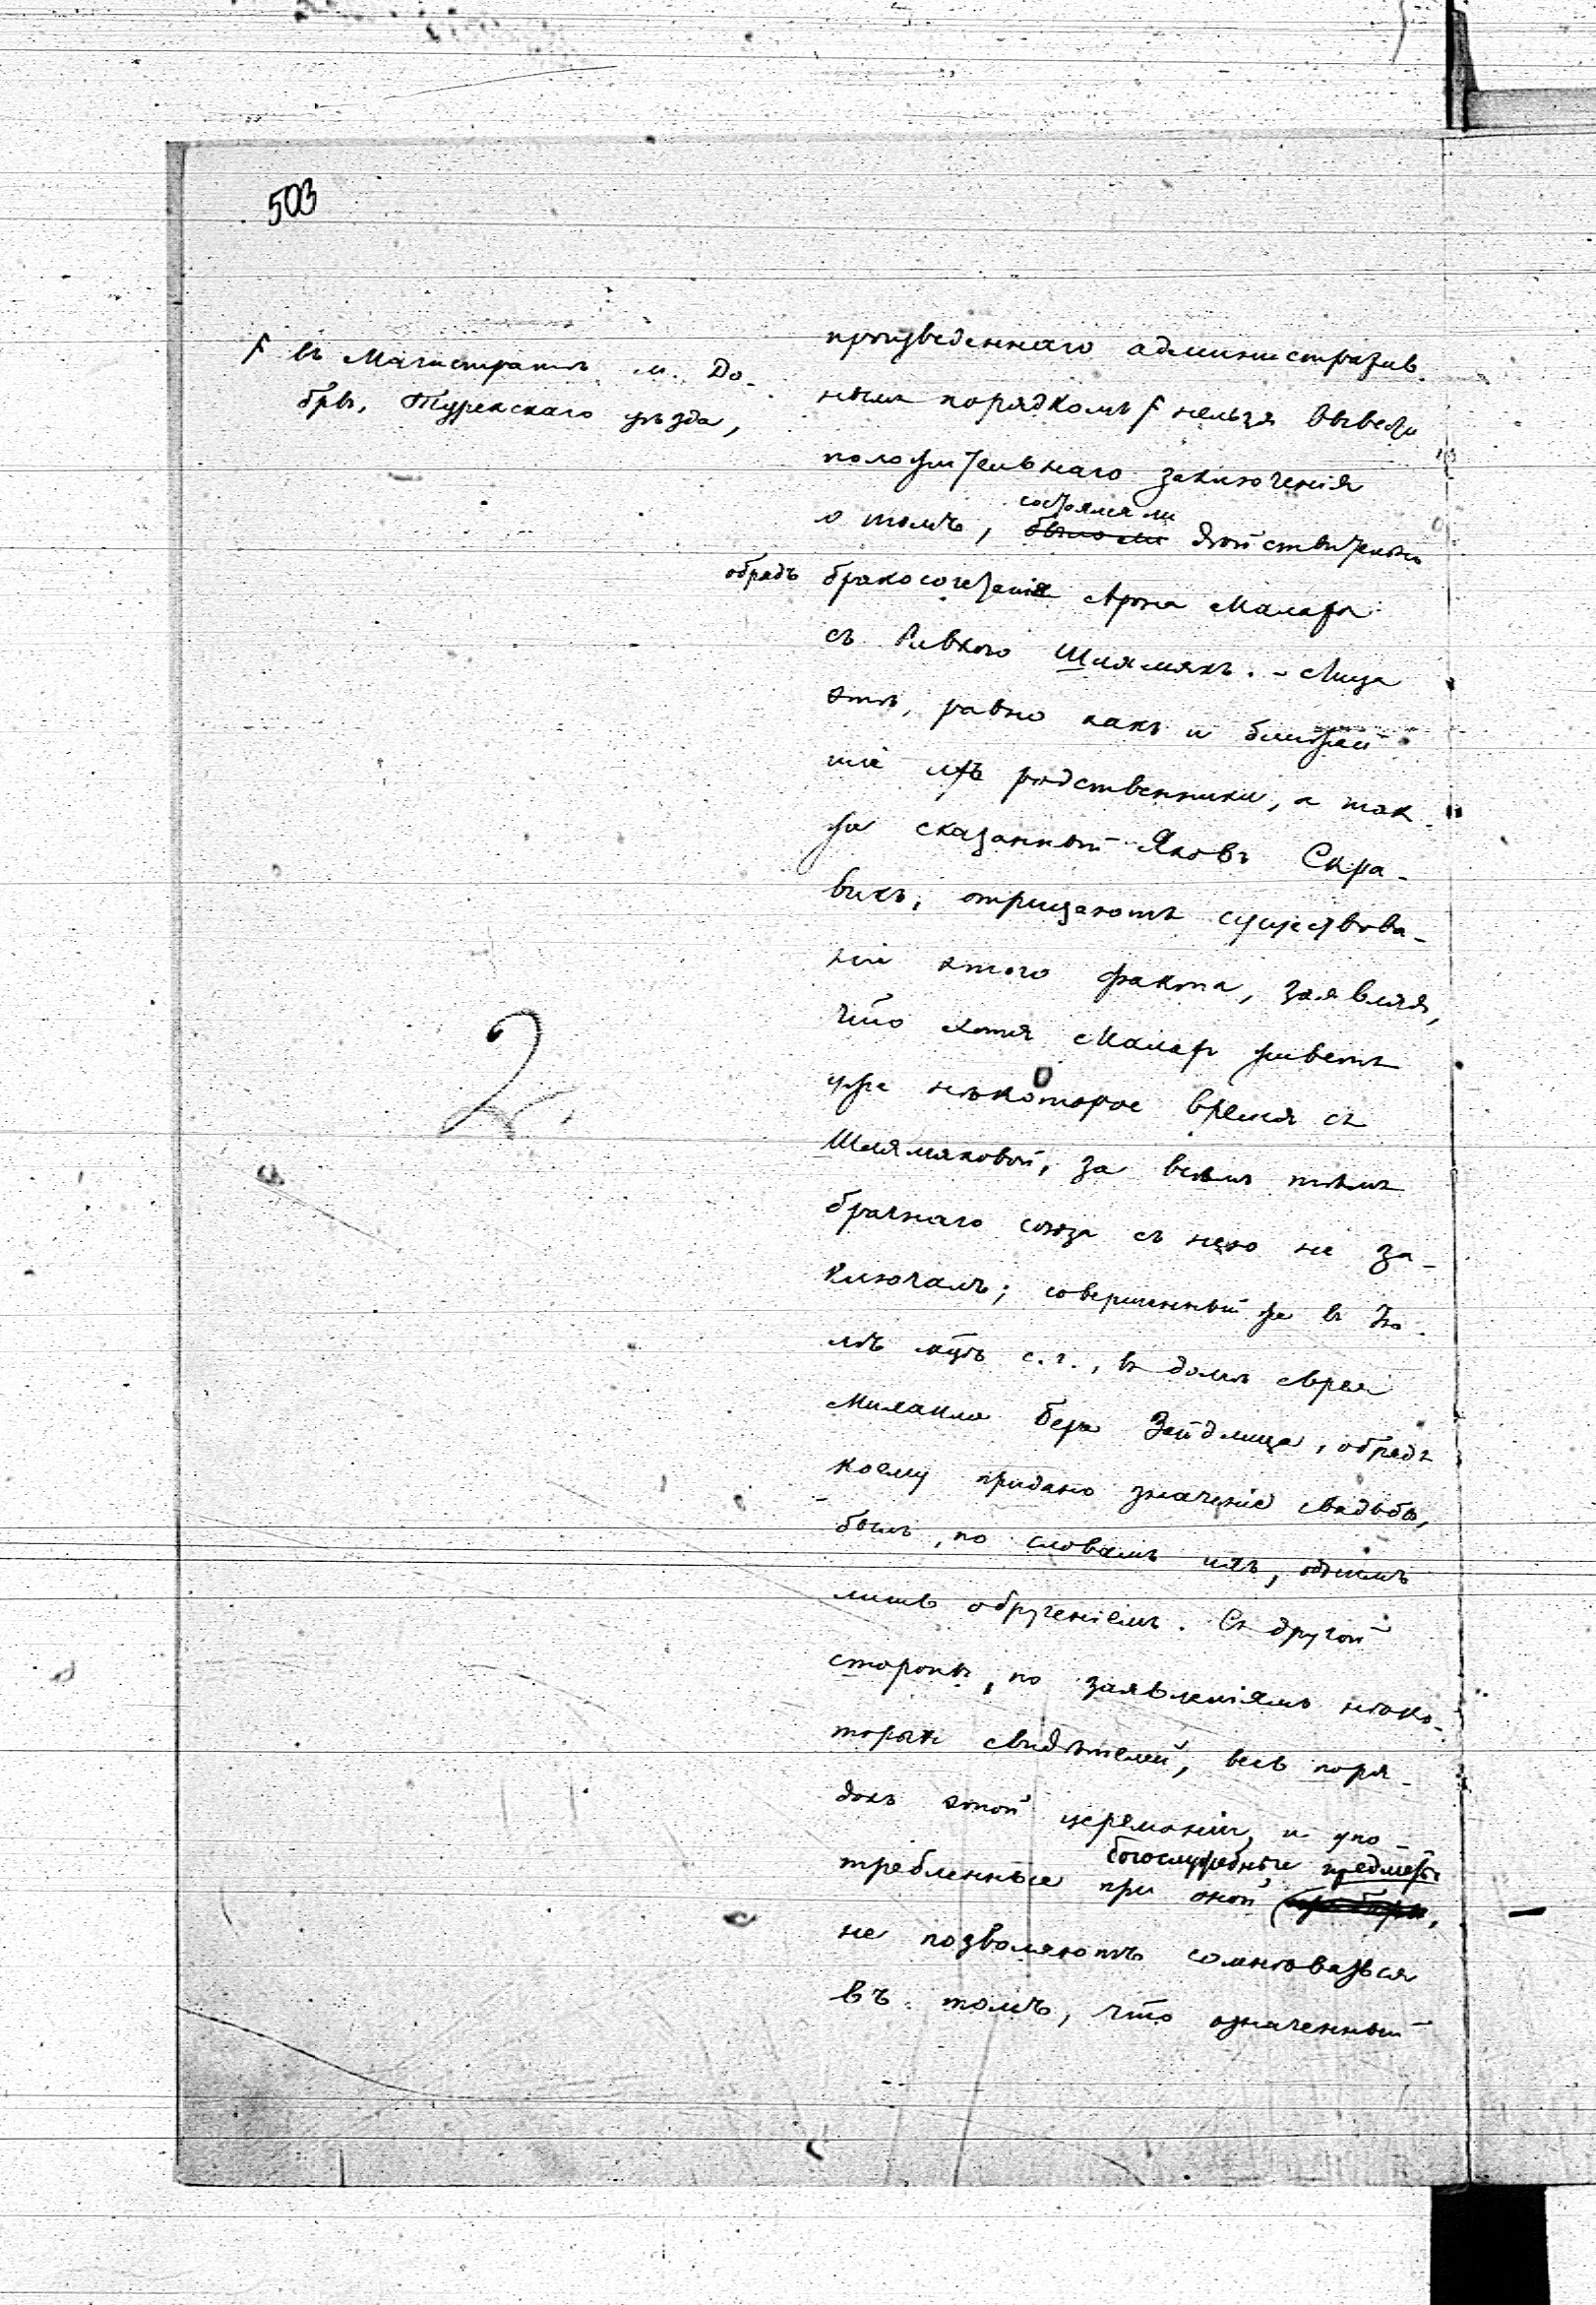 503
F въ Магистратѣ м. До-
брѣ, Турекскаго уѣзда,
произведеннаго административ-
нымъ порядкомъ F нельзя вывести
положительнаго заключенія
состоялся ли
о томъ, было ли дѣйствительно
обрядъ бракосочетанія Арона Маларя
съ Ривкою Шлямякъ. - Лица
эти, равно какъ и ближай
шіе ихъ родственники, а так-
же сказанный Яковъ Скра-
бикъ, отрицаютъ существова-
ніе этого факта, заявляя,
что хотя Маляръ живетъ
уже нѣкоторое время съ
Шлямяковой, за всѣмъ тѣмъ
брачнаго союза съ нею не за-
ключалъ; совершенный же въ Iю-
лѣ мцѣ с. г., въ домѣ еврея
Михаила Бера Зейдлица, обрядъ
коему придано значеніе свадьбы,
былъ, по словамъ ихъ, однимъ
лишь обрученіемъ. Съ другой
стороны, по заявленіямъ нѣко-
торыхъ свидѣтелей, весь поря-
докъ этой церемоніи, и упо-
богослужебные предметы
требленные при оной
не позволяютъ сомнѣваться
въ томъ, что означенный
2